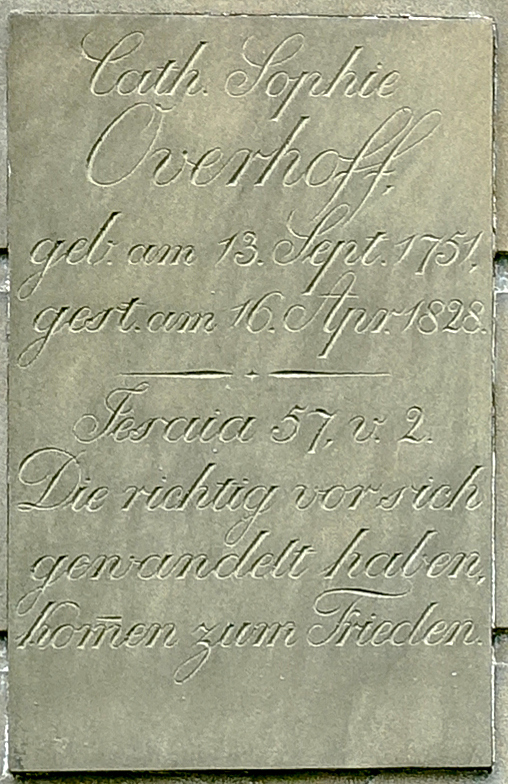 Cath. Sophie
Overhoff,
geb. am 13. Sept. 1751,
gest. am 16. Apr. 1828.
Jesaia 57, v. 2.
Die richtig vor sich
gewandelt haben,
kom̅en zum Frieden.